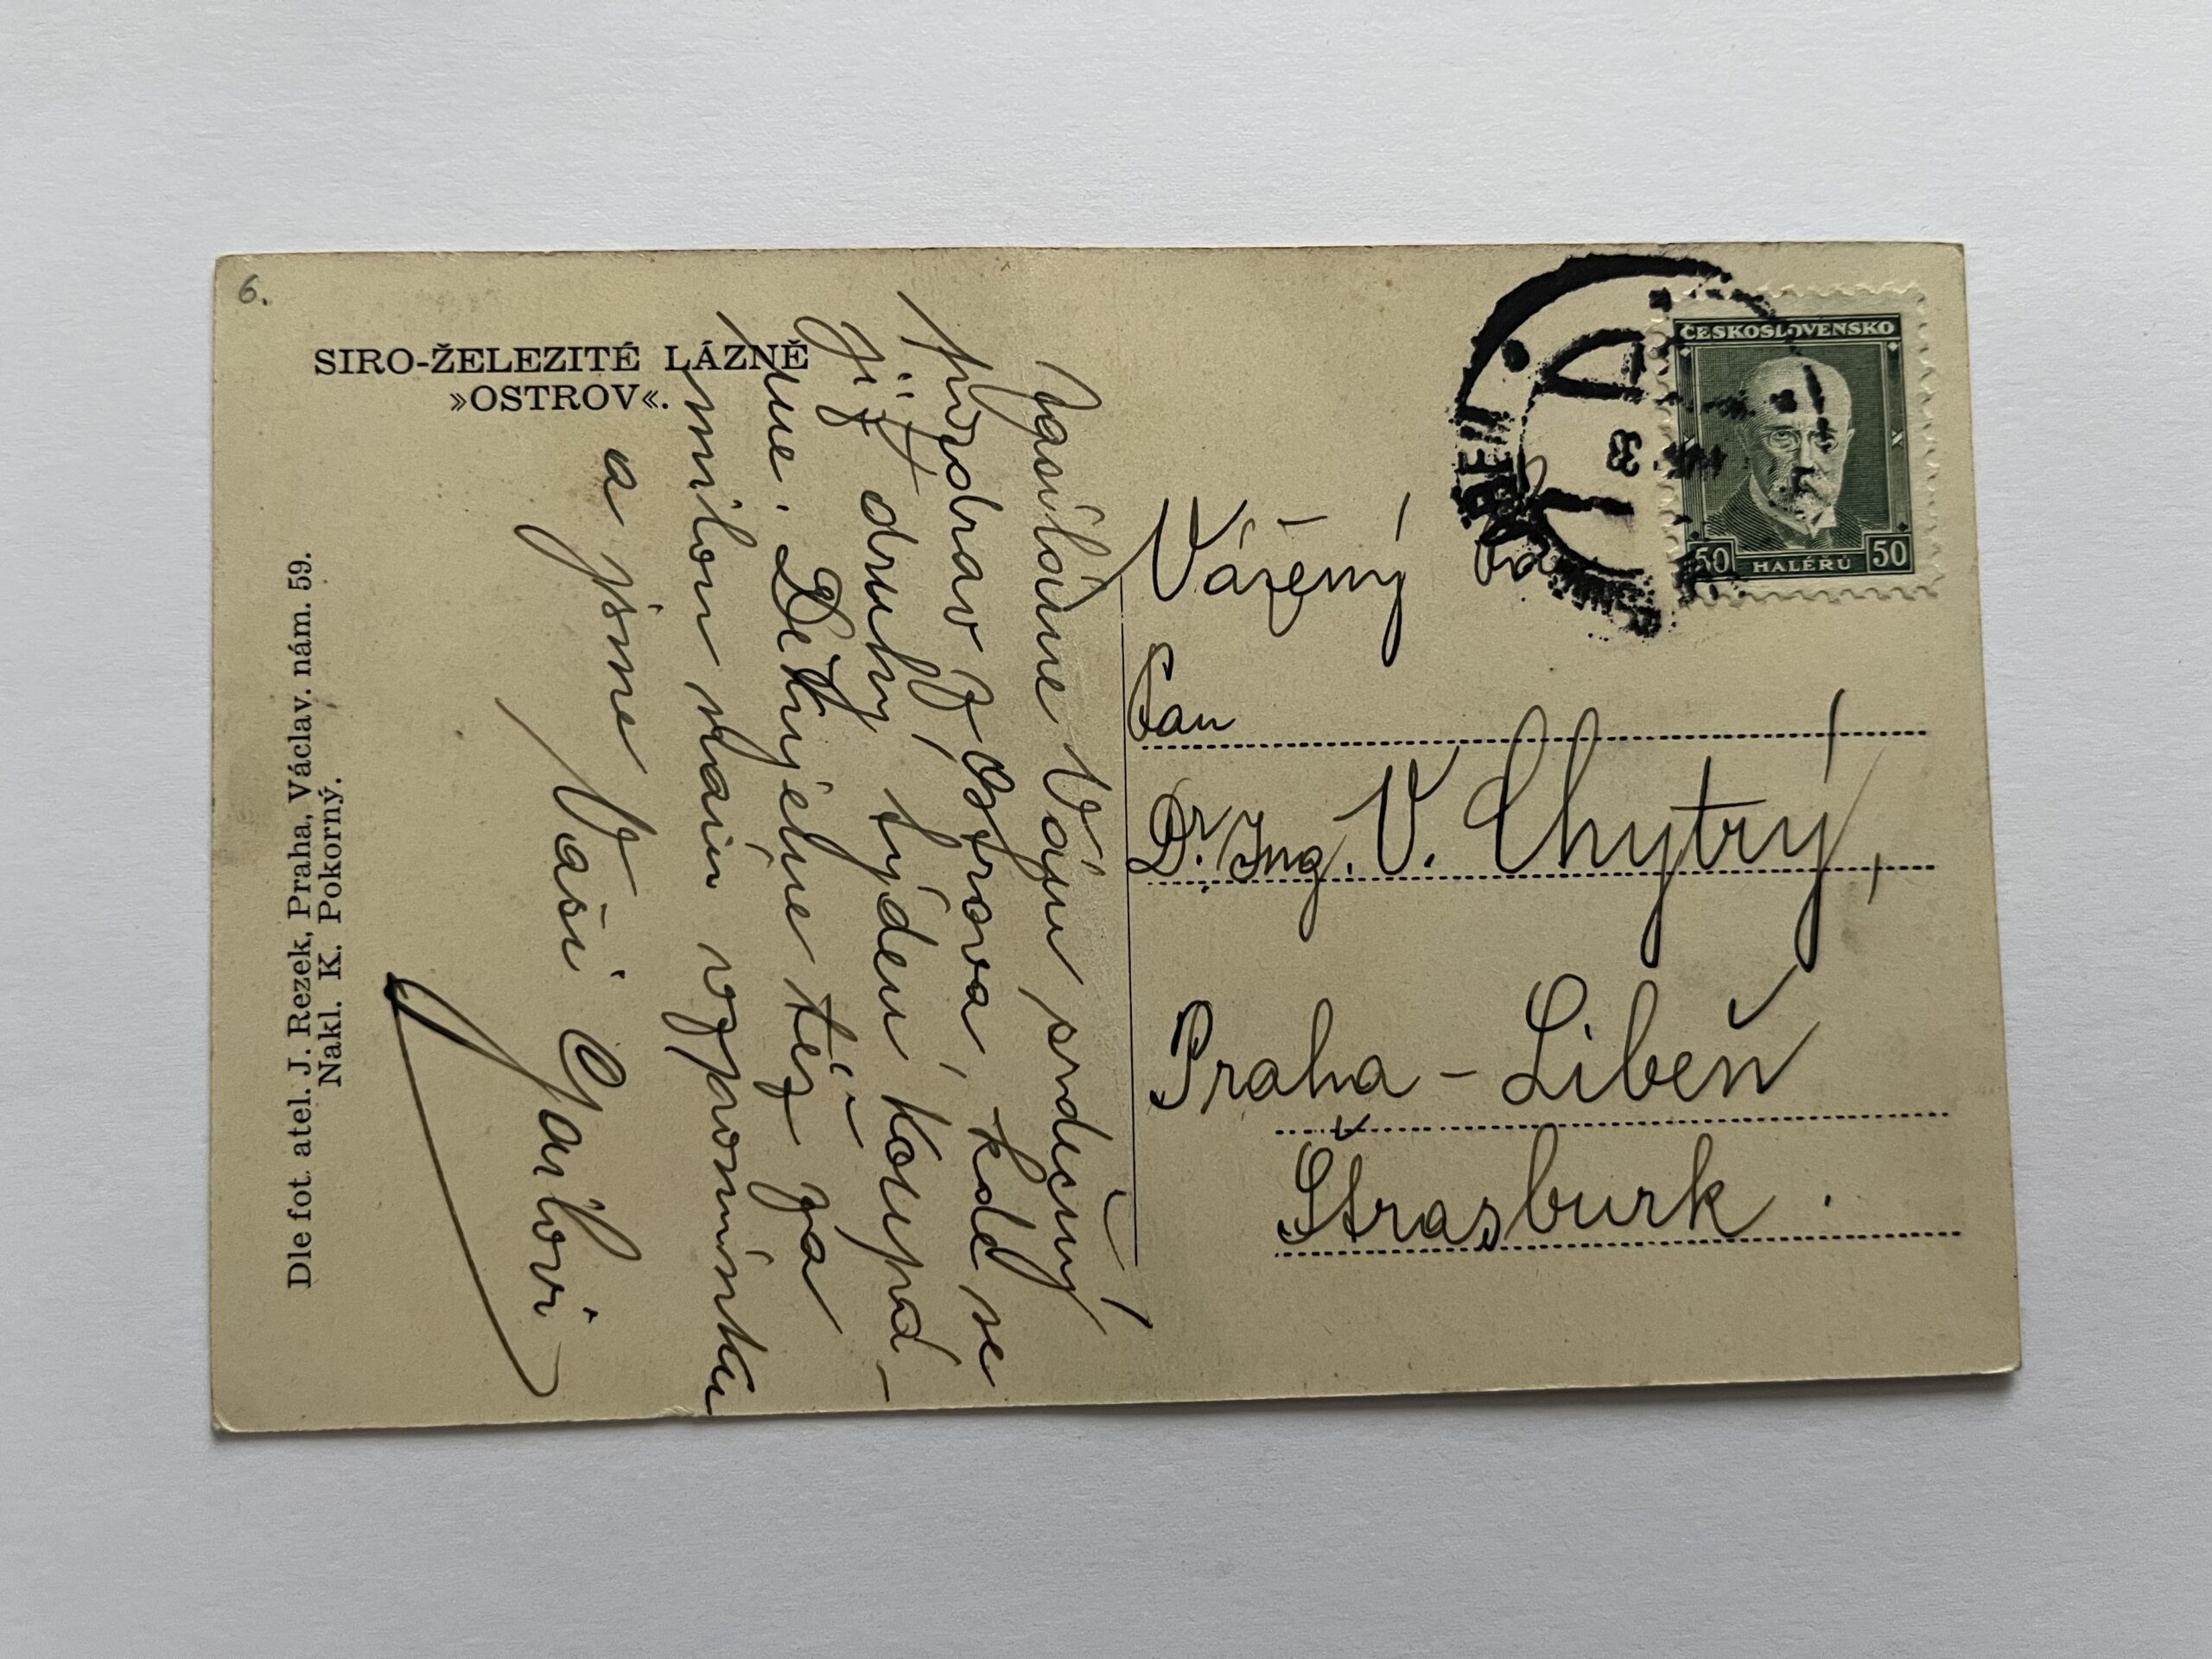 6.
SIRO-ŽELEZITÉ LÁZNĚ
»OSTROV«.
Dle fot. atel. J. Rezek, Praha, Václav. nám. 59.
Nakl. K. Pokorný.
Zasíláme Vám srdečný
pozdrav z Ostrova, kde se
již druhý týden koupá-
me. Děkujeme též za
milou vzpomínku
a jsme Vaši
ČESKOSLOVENSKO
50 HALÉŘŮ 50
Vážený
Pan
Dr. Ing. V. Chytrý,
Praha - Libeň
Štrasburk.